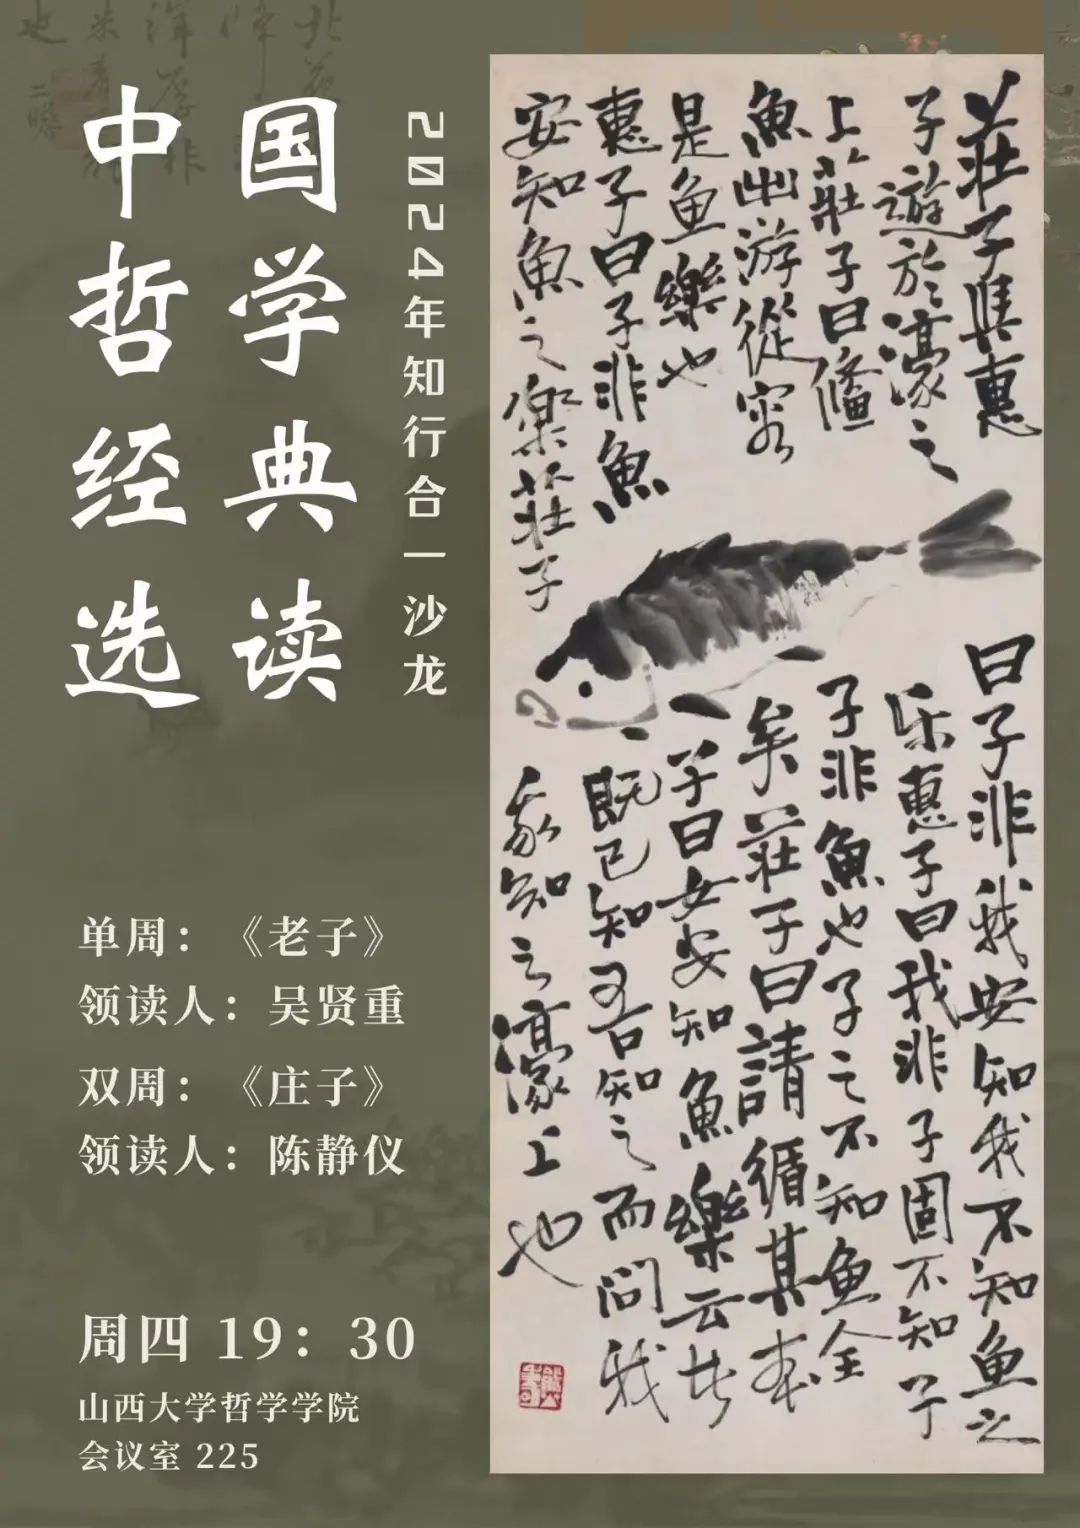 中国
哲学
经典
选读
2024年知行合一沙龙
莊子與惠
子遊於濠之
上莊子曰儵
魚出游從容
是鱼樂也
惠子曰子非魚
安知魚之樂莊子
曰子非我安知我不知鱼之
乐惠子曰我非子固不知子
子非魚也子之不知鱼全
矣莊子曰請循其本
子曰女安知魚樂云者
既已知吾知之而问我
我知之濠上也
单周：《老子》
领读人：吴贤重
双周：《庄子》
领读人：陈静仪
周四 19：30
山西大学哲学学院
会议室 225